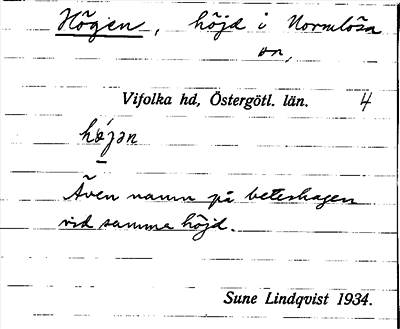 Högen, höjd i Normlösa
sn,
Vifolka hd, Östergötl. län. 4
hǿjən
Även namn på beteshagen
vid samma höjd.
Sune Lindqvist 1934.